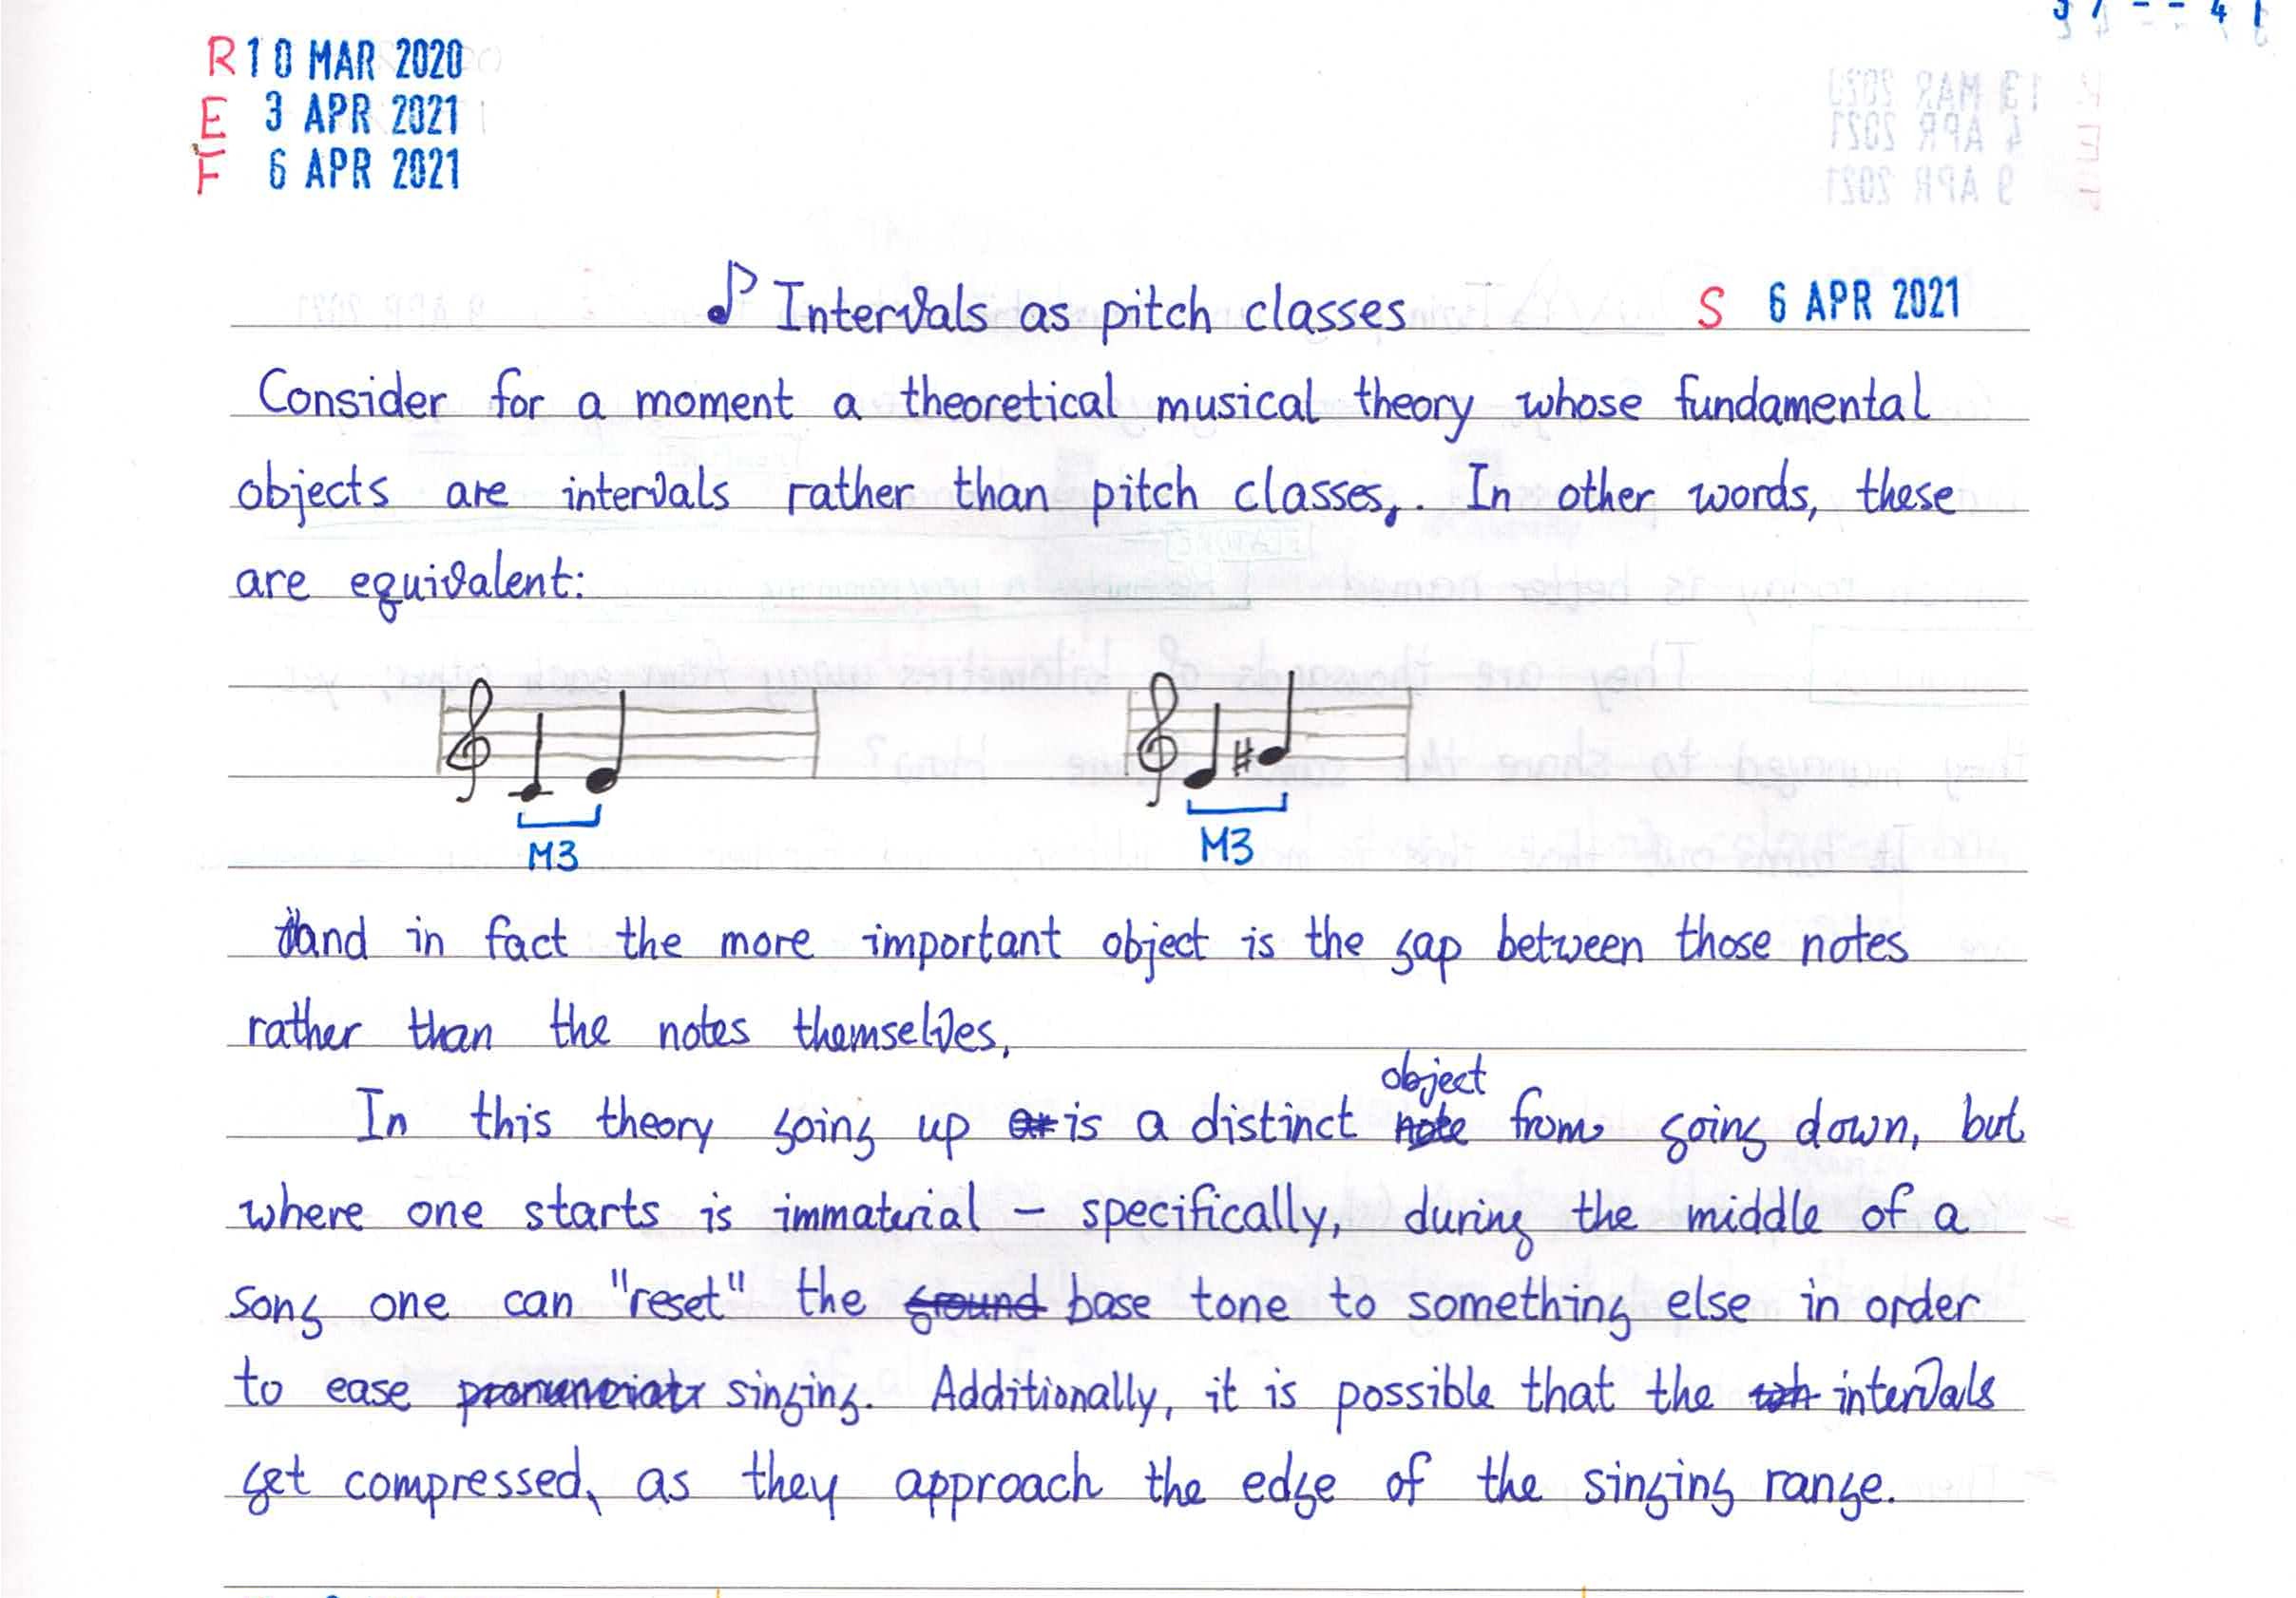 R 10 MAR 2020
E 3 APR 2021
F 6 APR 2021
Intervals as pitch classes S 6 APR 2021
Consider for a moment a theoretical musical theory whose fundamental
objects are intervals rather than pitch classes,. In other words, these
are equivalent:
M3 M3
and in fact the more important object is the gap between those notes
rather than the notes themselves.
object
In this theory going up or is a distinct note from going down, but
where one starts is immaterial – specifically, during the middle of a
song one can "reset" the ground base tone to something else in order
to ease singing. Additionally, it is possible that the intervals
get compressed, as they approach the edge of the singing range.